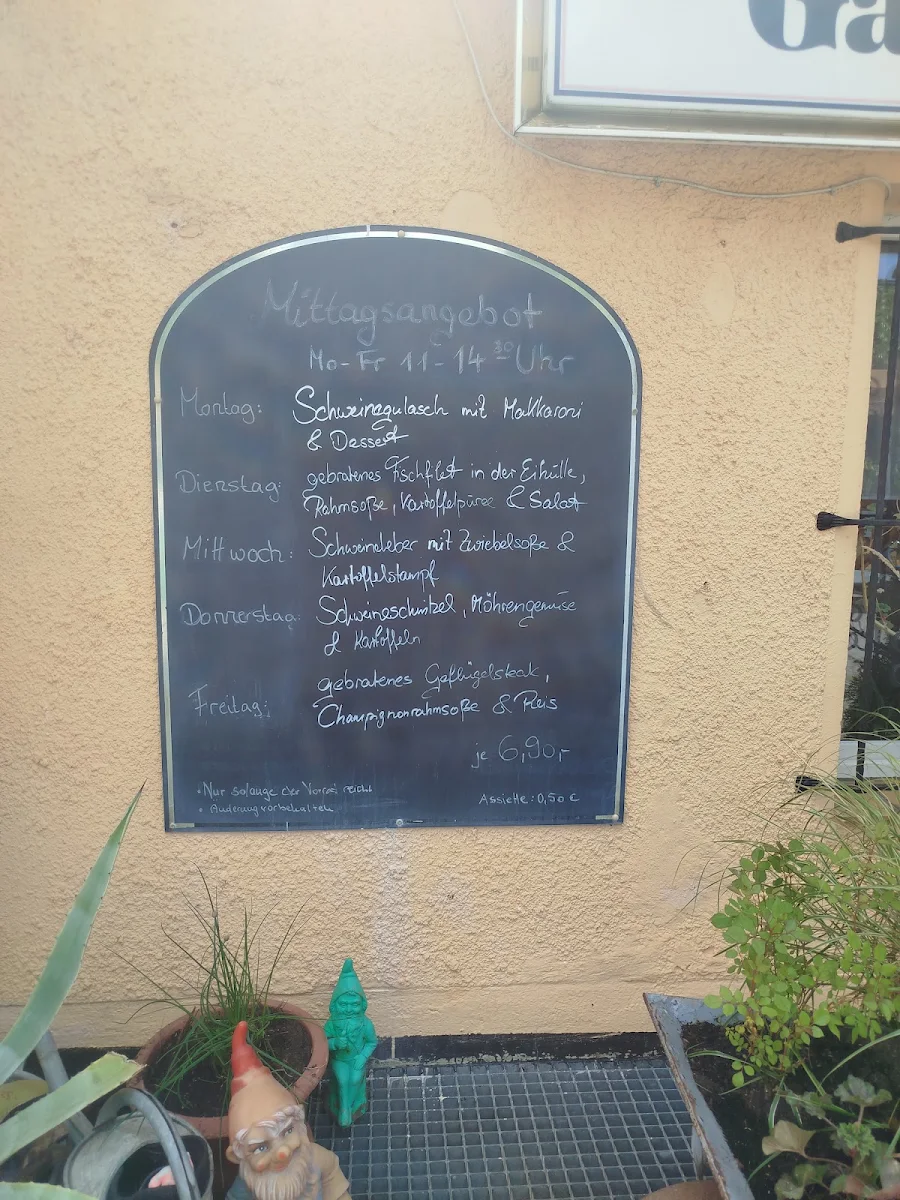 Ga
Mittagsangebot
Mo-Fr 11-14 30 Uhr
Montag: Schweinegulasch mit Makkaroni
& Dessert
Dienstag: gebratenes Fischfilet in der Eihülle,
Rahmsoße, Kartoffelpüree & Salat
Mittwoch: Schweineleber mit Zwiebelsoße &
Kartoffelstampf
Donnerstag: Schweineschnitzel, Möhrengemüse
& Kartoffeln
Freitag: gebratenes Geflügelsteak,
Champignonrahmsoße & Reis
je 6,90,-
• Nur solange der Vorrat reicht
• Änderung vorbehalten
Assiette: 0,50 €